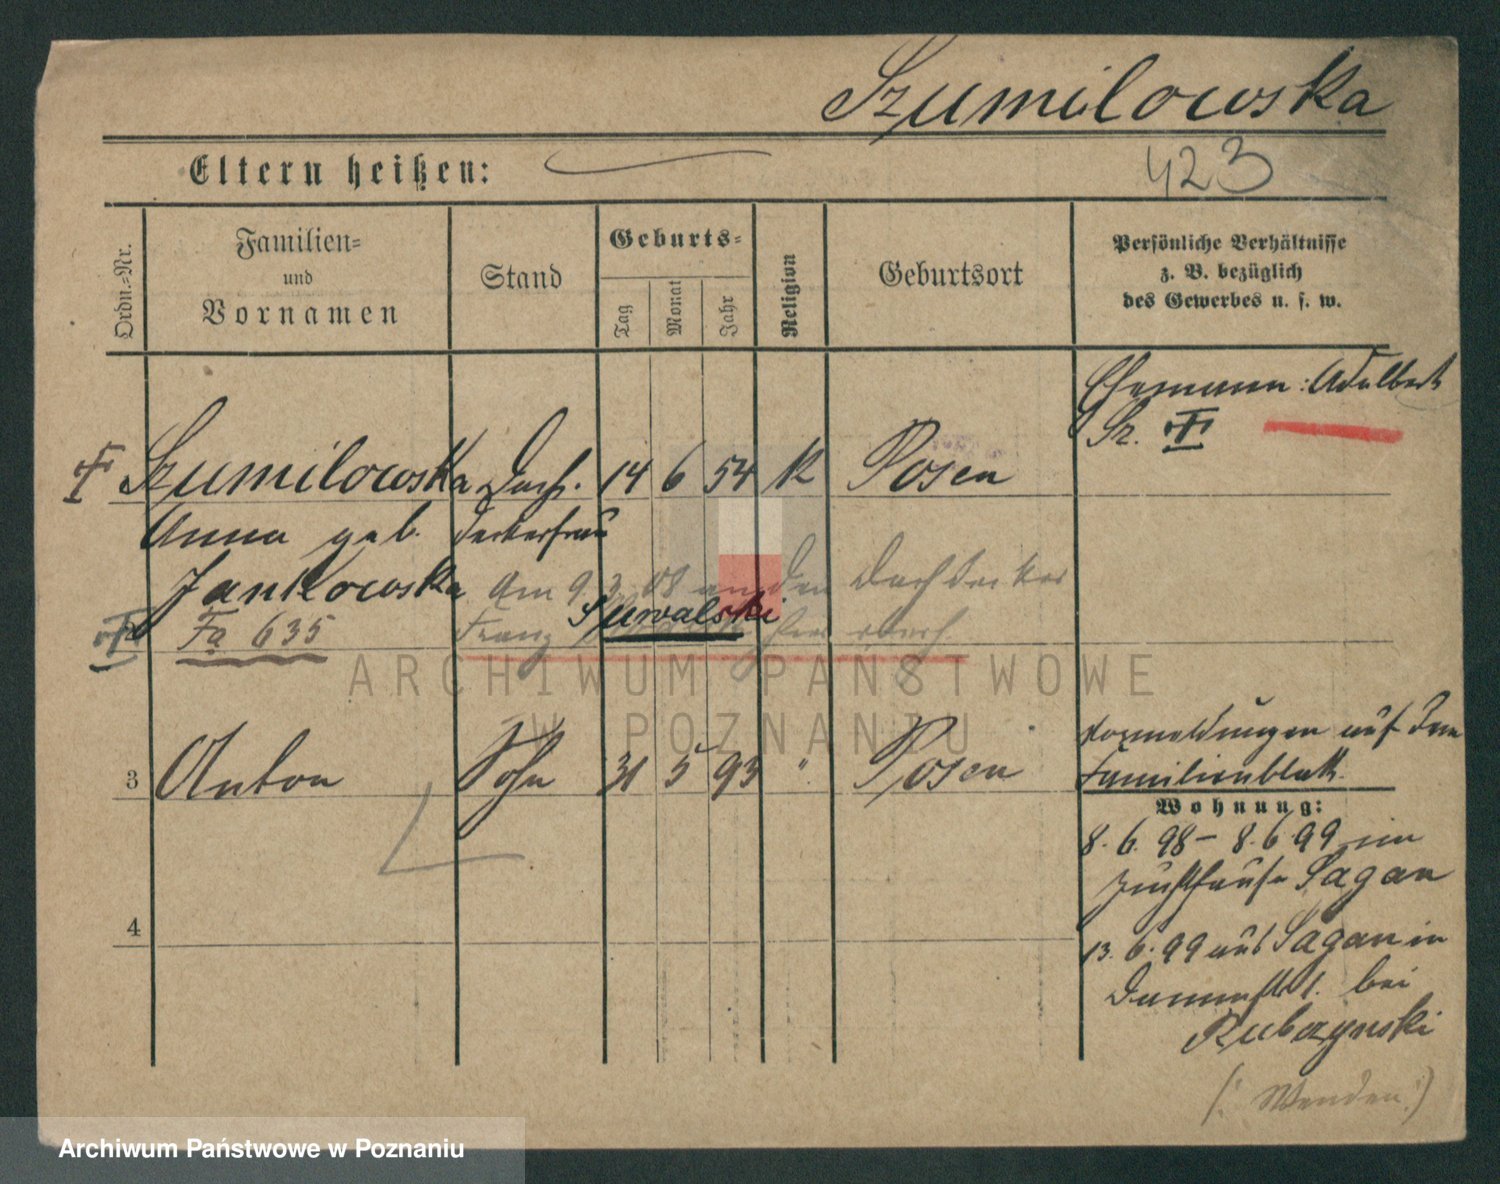 Szumilowska
Eltern heißen:
423
Ordn.-Nr.
Familien-
und
Vornamen
Stand
Geburts-
Tag
Monat
Jahr
Religion
Geburtsort
Persönliche Verhältnisse
z. B. bezüglich
des Gewerbes u. s. w.
Ehemann: Adalbert
Sz.
Szumilowska Dach- 14 6 54 K Posen
Anna geb. deckerfrau
Jankowska Am 9. 3. 08 an den Dachdecker
Suwalski
Fa 635 Franz
3 Anton Sohn 31 5 93 " Posen
Vormeldungen auf dem
Familienblatt.
Wohnung:
8. 6. 98 - 8. 6. 99 im
Zuchthause Sagan
4
13. 6. 99 aus Sagan in
bei
Rubczynski
(: Wenden :)
ARCHIWUM PAŃSTWOWE
W POZNANIU
Archiwum Państwowe w Poznaniu